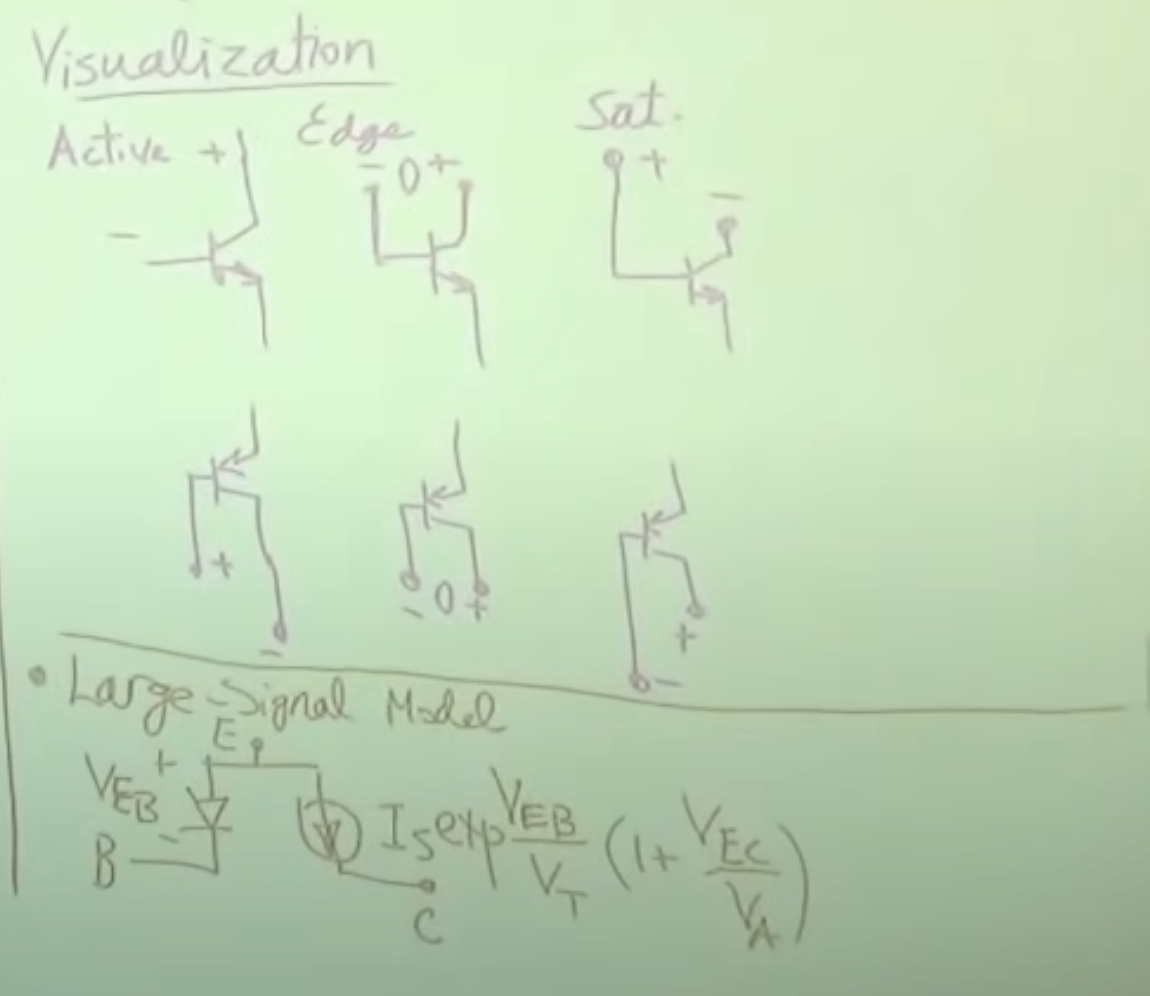 Visualization
Active + Edge Sat.
- - 0 + + -
+ - 0 + + -
-
• Large-Signal Model
E
V_EB + - I_S exp V_EB/V_T (1 + V_EC/V_A)
B
C